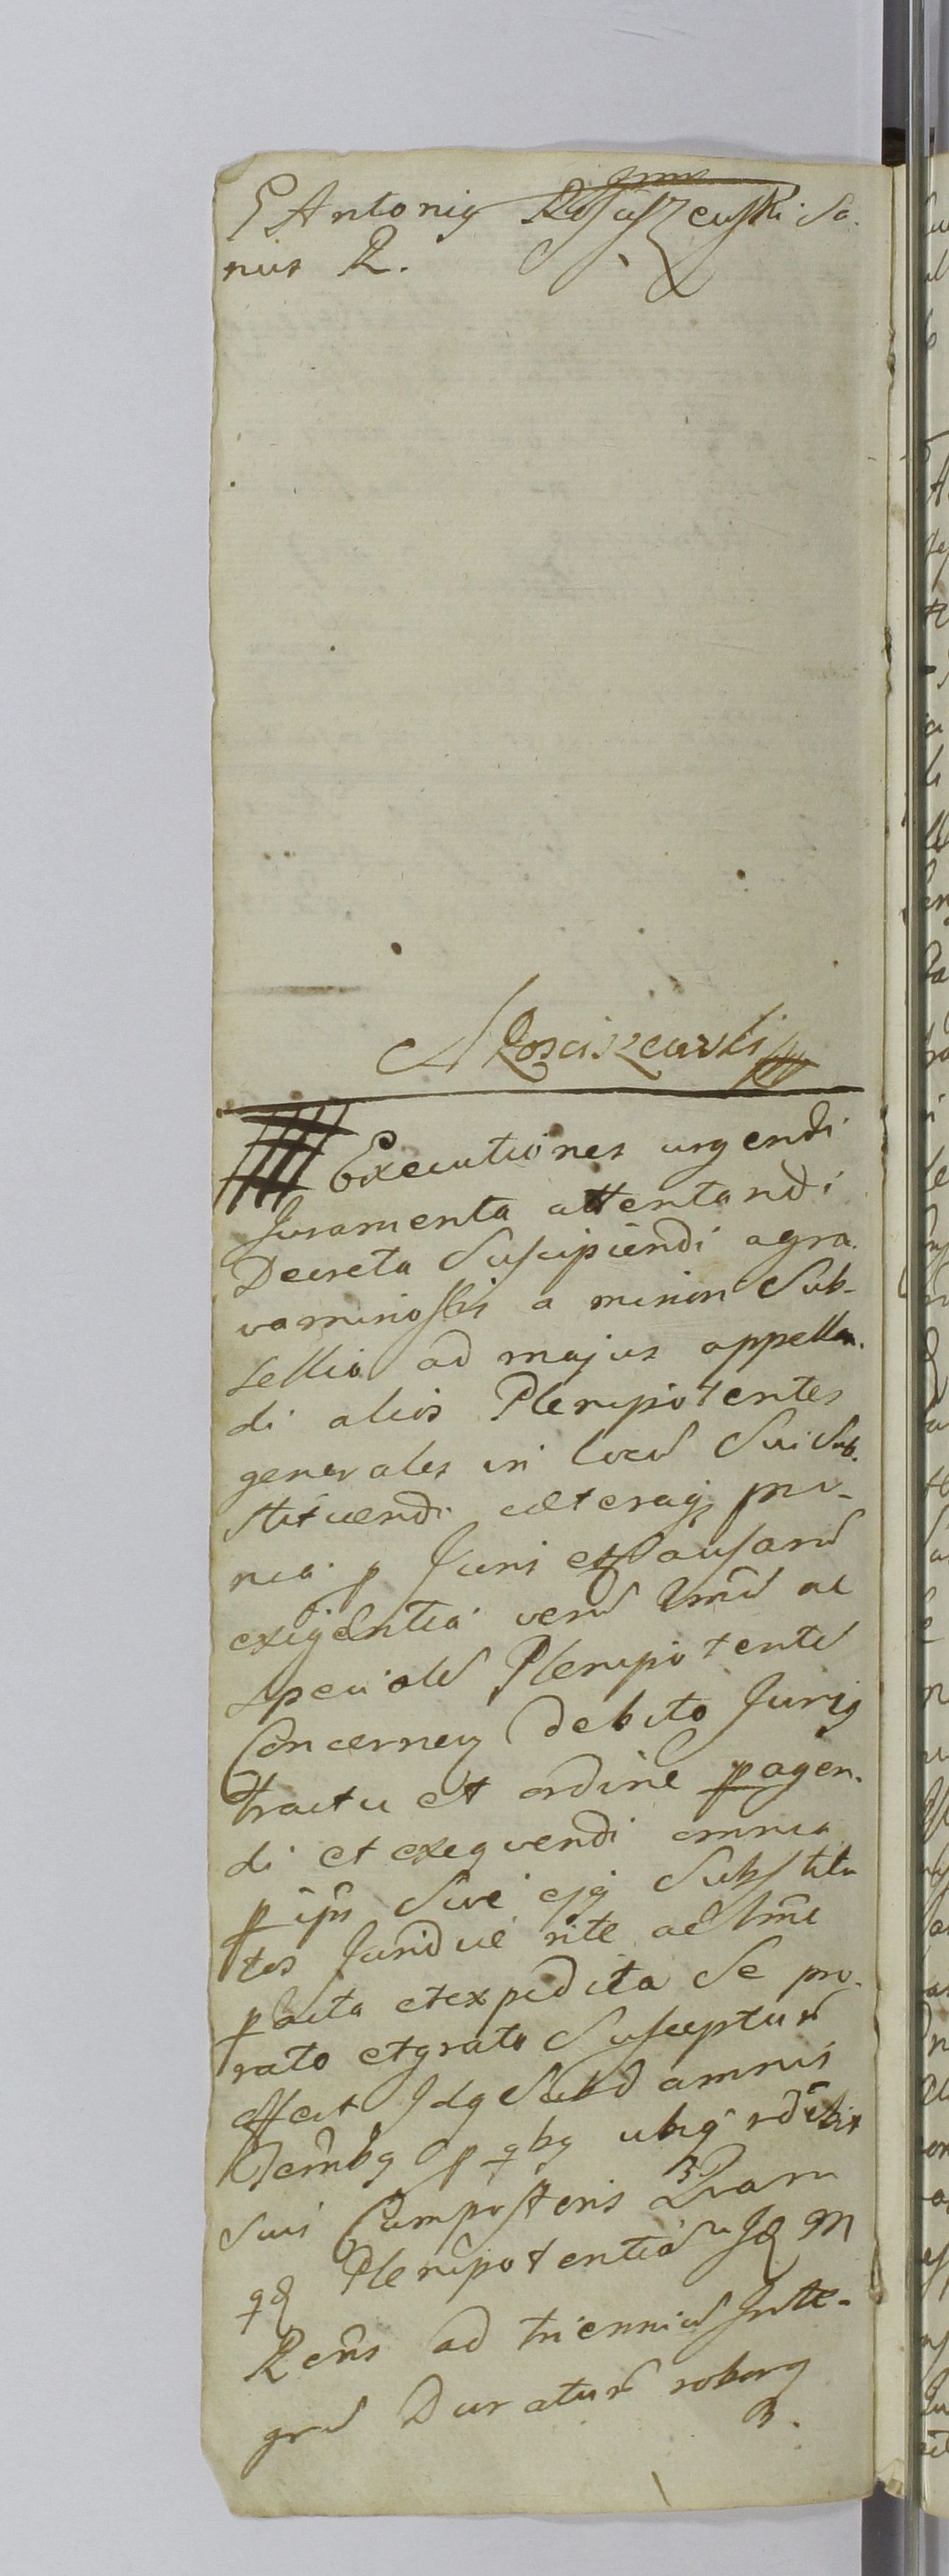 G Antonig Rosciszewski Sa.
nus R.
A Rosciszewski
Executiones urgendi
Juramenta attentandi
Decreta Suscipiendi agra.
vaminosis a minori Sub-
sellio ad majus appellan.
di alios Plenipotentes
generales in locu Sui Sub.
stituendi caeteraq pm-
nia p Juris et Causaru
exigentia veru ac
speciale Plenipotente
Concerneg debito Jurig
tractu et ordine pagen.
di et exequendi omnia
p ipm Sive ejg Substitu
tos Juridice rite ac
pacta et expedita Se pro.
rato et grato Suscepturu
omnis
p qbg ubig
Suis Compostens Quam
qd Plenipotentia Jd M
Rens ad trienniu Inte-
gru Duraturu roborg
R.